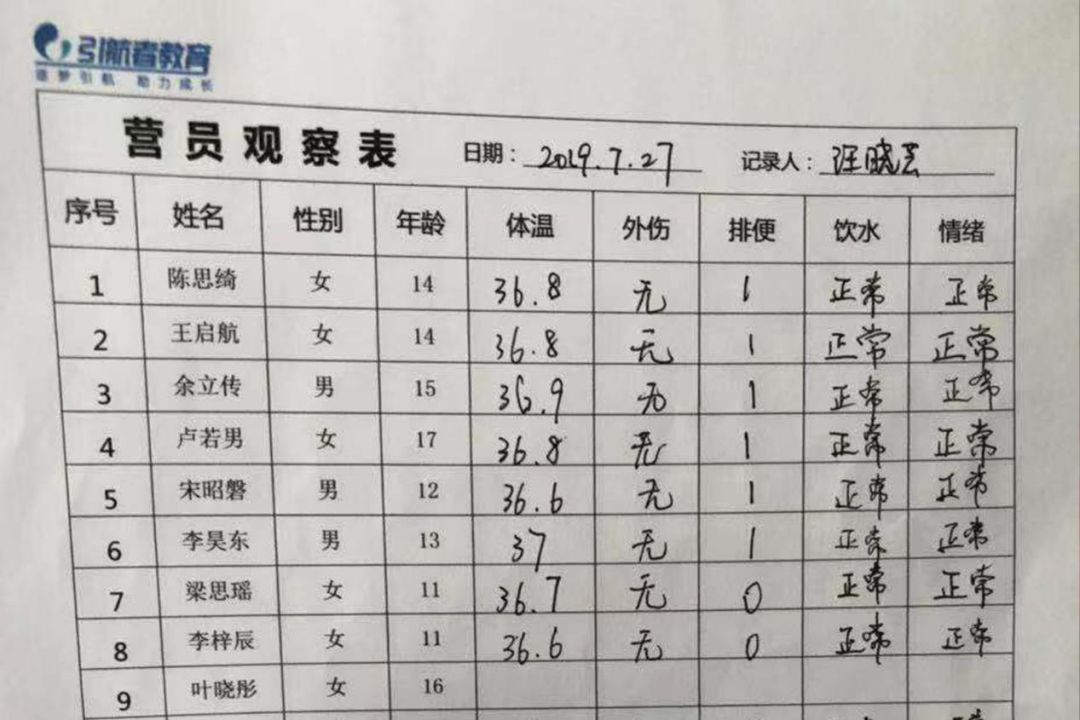 引航者教育
追梦引航 助力成长
营员观察表 日期：2019.7.27 记录人：汪晓芸
序号 姓名 性别 年龄 体温 外伤 排便 饮水 情绪
1 陈思绮 女 14 36.8 无 1 正常 正常
2 王启航 女 14 36.8 无 1 正常 正常
3 余立传 男 15 36.9 无 1 正常 正常
4 卢若男 女 17 36.8 无 1 正常 正常
5 宋昭磐 男 12 36.6 无 1 正常 正常
6 李昊东 男 13 37 无 1 正常 正常
7 梁思瑶 女 11 36.7 无 0 正常 正常
8 李梓辰 女 11 36.6 无 0 正常 正常
9 叶晓彤 女 16